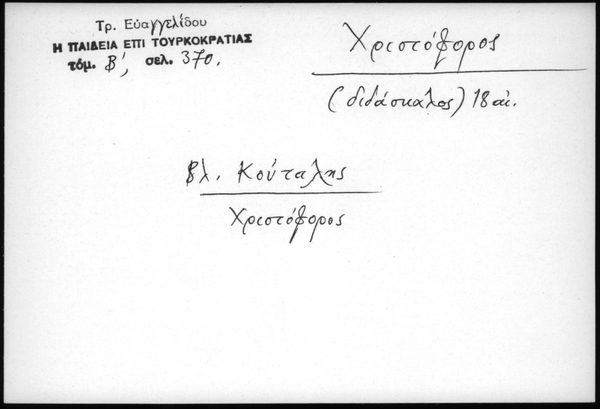 Τρ. Εὐαγγελίδου
Η ΠΑΙΔΕΙΑ ΕΠΙ ΤΟΥΡΚΟΚΡΑΤΙΑΣ
τόμ. Β', σελ. 370.
Χριστόφορος
(διδάσκαλος) 18 αἰ.
Βλ. Κούταλης
Χριστόφορος